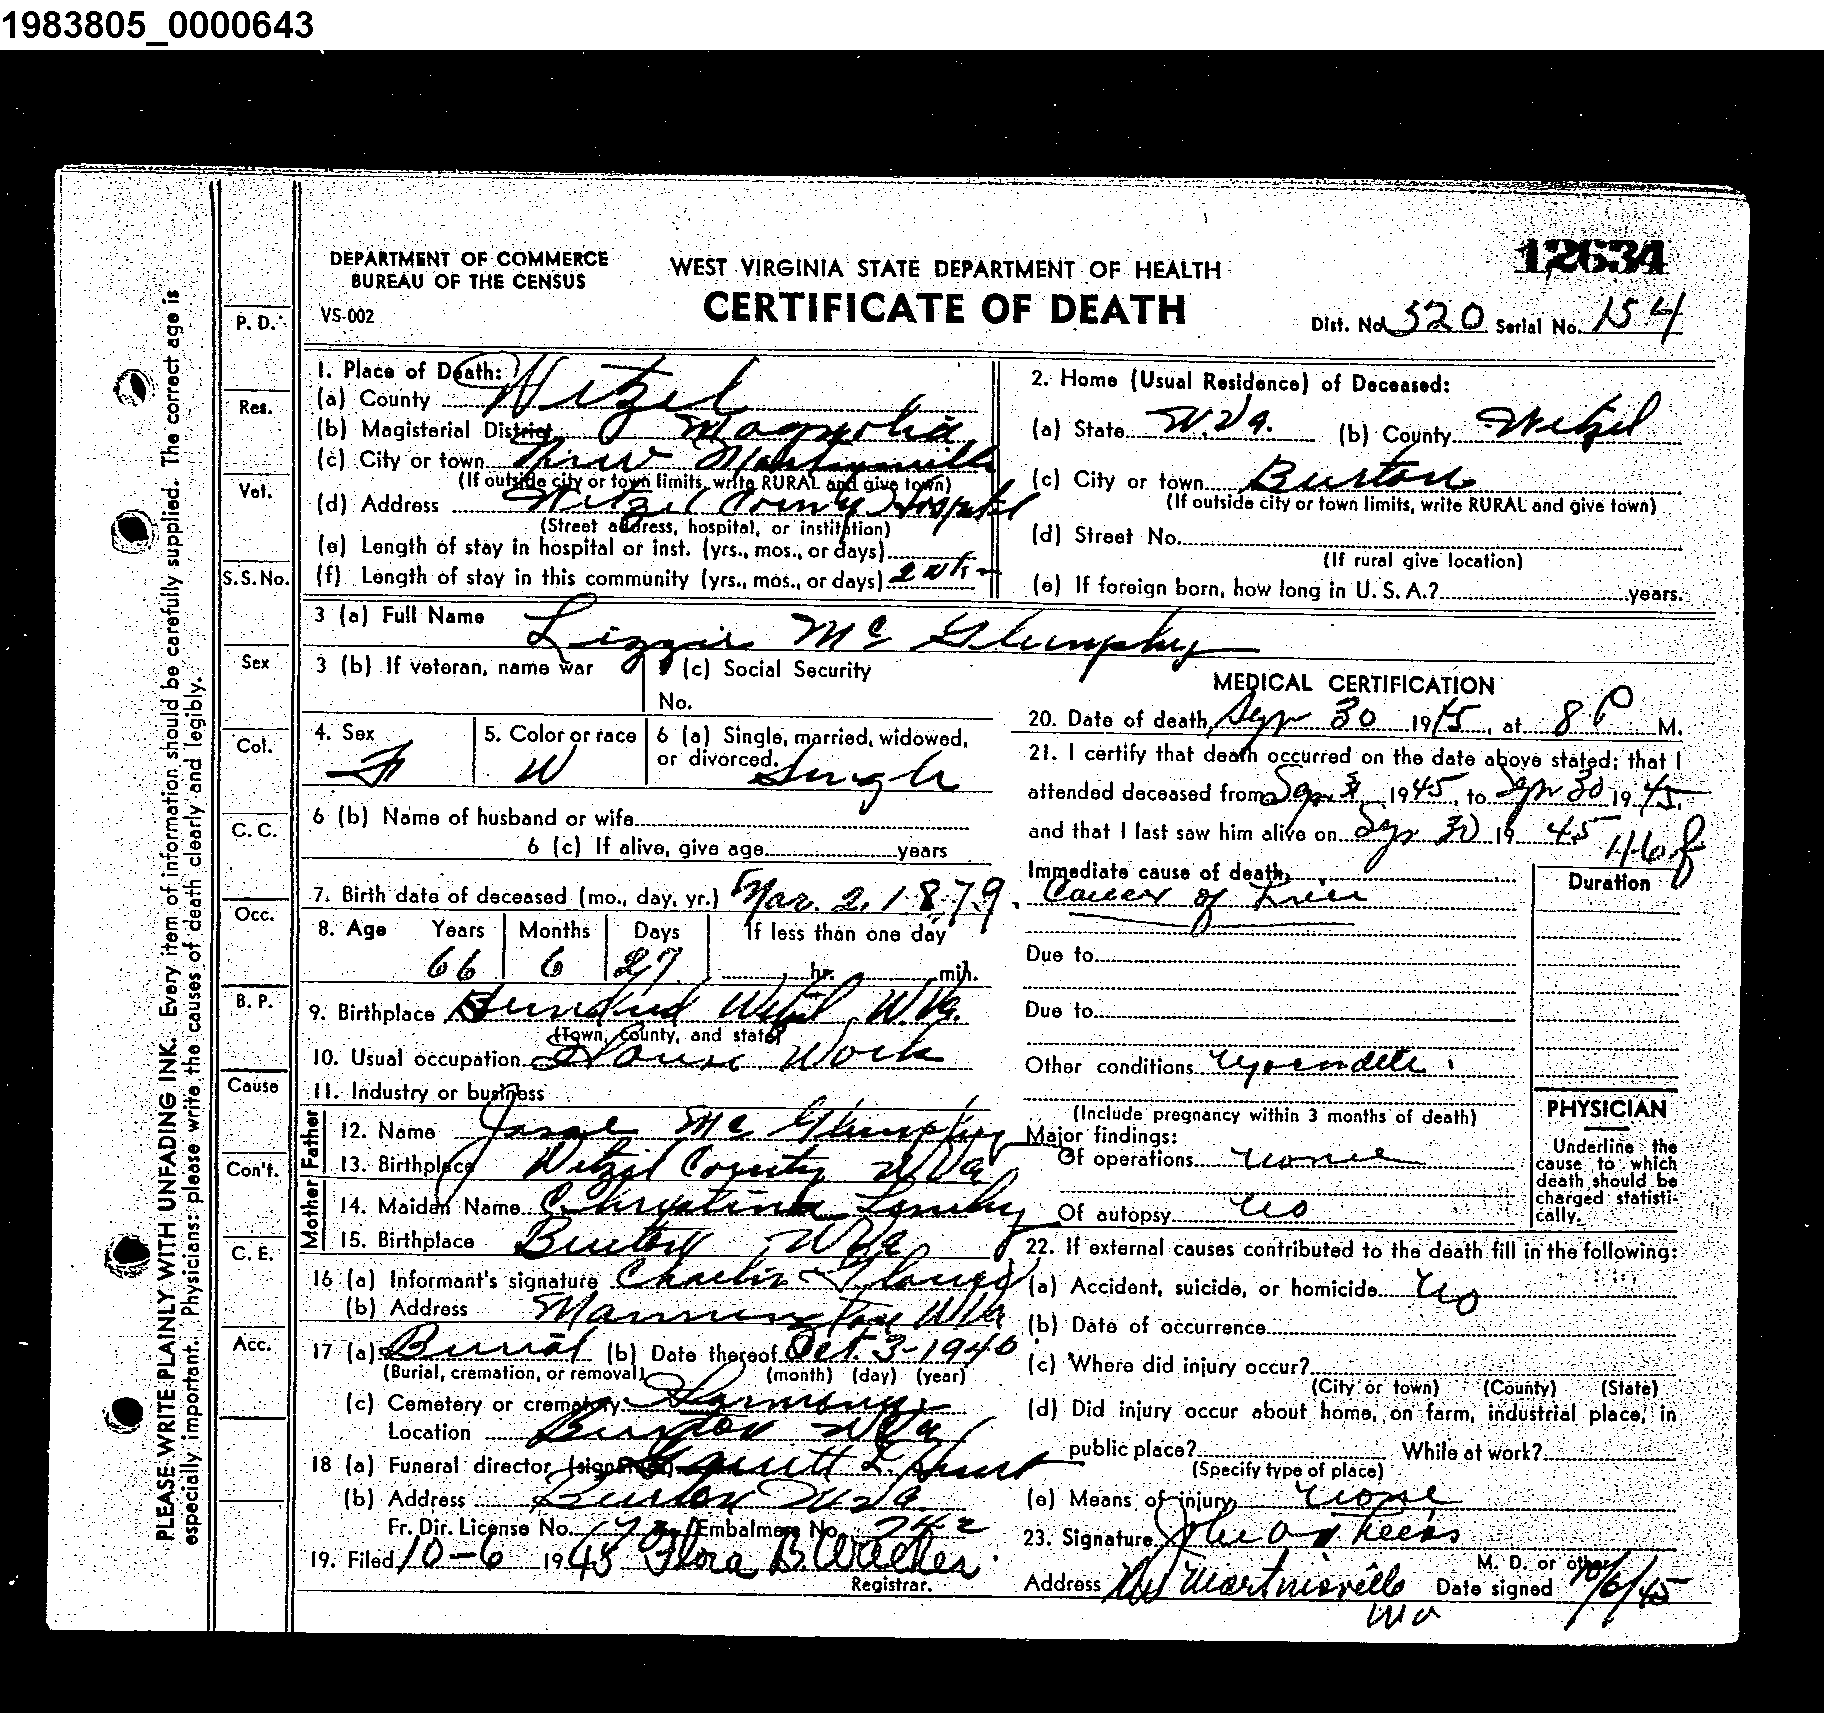 1983805_0000643
12634
DEPARTMENT OF COMMERCE
BUREAU OF THE CENSUS
VS-002
WEST VIRGINIA STATE DEPARTMENT OF HEALTH
CERTIFICATE OF DEATH
Dist. No. 520 Serial No. 154
PLEASE WRITE PLAINLY WITH UNFADING INK. Every item of information should be carefully supplied. The correct age is
especially important. Physicians: please write the causes of death clearly and legibly.
P. D.
Res.
Vet.
S. S. No.
Sex
Col.
C. C.
Occ.
B. P.
Cause
Con't.
C. E.
Acc.
1. Place of Death:
(a) County Wetzel
(b) Magisterial District Magnolia
(c) City or town New Martinsville
(If outside city or town limits, write RURAL and give town)
(d) Address Wetzel County Hospital
(Street address, hospital, or institution)
(e) Length of stay in hospital or inst. (yrs., mos., or days)
(f) Length of stay in this community (yrs., mos., or days) 2 wk
2. Home (Usual Residence) of Deceased:
(a) State W. Va. (b) County Wetzel
(c) City or town Burton
(If outside city or town limits, write RURAL and give town)
(d) Street No.
(If rural give location)
(e) If foreign born, how long in U. S. A.? years.
3 (a) Full Name Lizzie Mc Glumphy
3 (b) If veteran, name war
3 (c) Social Security
No.
4. Sex F
5. Color or race W
6 (a) Single, married, widowed,
or divorced. Single
6 (b) Name of husband or wife
6 (c) If alive, give age years
7. Birth date of deceased (mo., day, yr.) Mar. 2, 1879.
8. Age Years Months Days If less than one day
66 6 27 hr. min.
9. Birthplace Hundred Wetzel W. Va.
(Town, county, and state)
10. Usual occupation House Work
11. Industry or business
Father
12. Name Mc Glumphy
13. Birthplace Wetzel County W Va
Mother
14. Maiden Name Chrystina
15. Birthplace Burton W Va
16 (a) Informant's signature Charlie
(b) Address Mannington W Va
17 (a) Burial (b) Date thereof Oct. 3-1940
(Burial, cremation, or removal) (month) (day) (year)
(c) Cemetery or crematory Harmony
Location Burton W Va
18 (a) Funeral director (signature) L. Hunt
(b) Address Burton W Va.
Fr. Dir. License No. Embalmers No. 742
19. Filed 10-6 1945 Flora B.
Registrar.
MEDICAL CERTIFICATION
20. Date of death Sep 30 1945, at 8 P M.
21. I certify that death occurred on the date above stated; that I
attended deceased from Sep 1945, to Sep 30 1945,
and that I last saw him alive on Sep 30 19 45
46f
Immediate cause of death,
Cancer of Liver
Duration
Due to
Due to
Other conditions
(Include pregnancy within 3 months of death)
Major findings:
Of operations none
Of autopsy no
PHYSICIAN
Underline the
cause to which
death should be
charged statisti-
cally.
22. If external causes contributed to the death fill in the following:
(a) Accident, suicide, or homicide no
(b) Date of occurrence
(c) Where did injury occur?
(City or town) (County) (State)
(d) Did injury occur about home, on farm, industrial place, in
public place? While at work?
(Specify type of place)
(e) Means of injury none
23. Signature
M. D. or other
Address New Martinsville Date signed 10/6/45